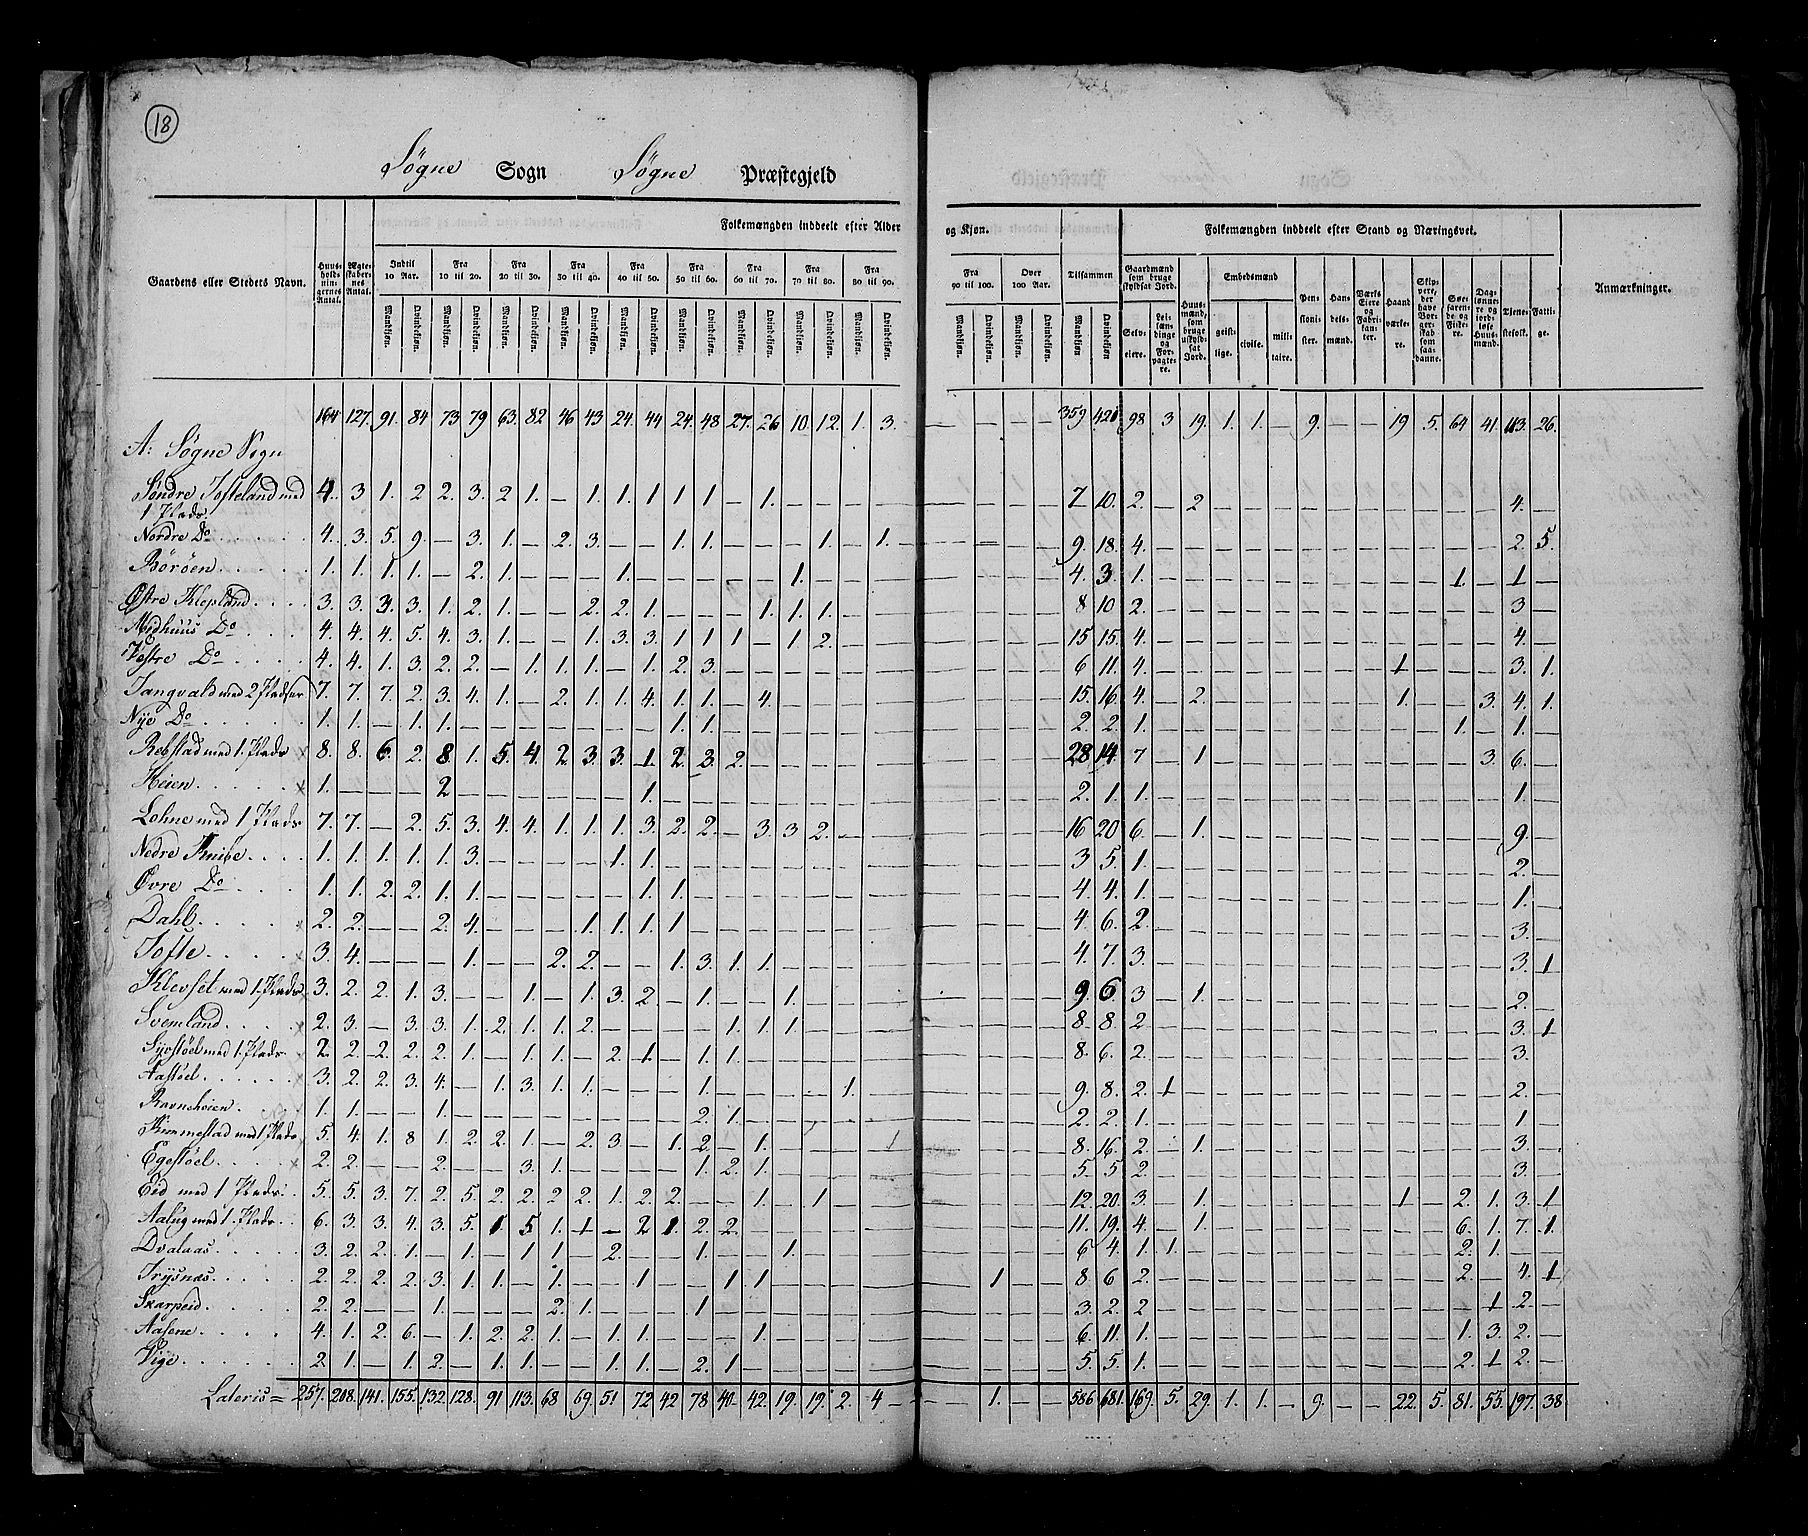 18
Søgne Sogn Søgne Præstegjeld
Gaardens eller Stedets Navn.
Huus-holdnin-gernes Antal.
Ægte-skaber-nes Antal.
Folkemængden inddeelt efter Alder og Kjøn.
Indtil 10 Aar.
Fra 10 til 20.
Fra 20 til 30.
Fra 30 til 40.
Fra 40 til 50.
Fra 50 til 60.
Fra 60 til 70.
Fra 70 til 80.
Fra 80 til 90.
Fra 90 til 100.
Over 100 Aar.
Tilsammen
Mandkjøn. Qvindekjøn.
Folkemængden inddeelt efter Stand og Næringsvei.
Gaardmænd som bruge skyldsat Jord.
Selv-eiere.
Lei-læn-dinge og For-pagte-re.
Huus-mænd, som bruge uskyld-sat Jord.
Embedsmænd
geist-lige.
civile.
mili-taire.
Pen-sioni-ster.
Han-dels-mænd.
Værks Eiere og Fabri-kan-ter.
Haand værke-re.
Skip-pere, der have Bor-ger-skab som saa-danne.
Søe-farende og Fiske-re.
Dag-lønne-re og jord-løse Huus-mænd.
Tjene-stefolk.
Fatti-ge.
Anmærkninger.
164 127. 91. 84 73 79 63. 82 46 43 24. 44 24. 48 27. 26 10. 12. 1. 3. — — — — 359. 420 98 3 19. 1. 1. — 9. — — 19 5. 64 41. 113. 26.
A: Søgne Sogn
Søndre Tofteland med 4. 3 1. 2 2. 3. 2 1. — 1. 1. 1 1 1 — 1. — — — — 7 10. 2. — 2 — — — — — — — — — — 4. —
1 Plads.
Nordre Do 4. 3. 5. 9. — 3. 1. — 2. 3. — — 1. 1. — — — 1. — 1. 9. 18. 4. — — — — — — — — — — — — 2. 5.
Børøen 1. 1. 1. 1. — 2. 1. — — — 1. — — — — — 1. — — — 4. 3. 1. — — — — — — — — — — 1. — 1 —
Østre Klepland 3. 3. 3. 3. 1. 2. 1. — — 2. 2. 1. — — — 1. 1. 1. — — 8 10 2. — — — — — — — — — — — — 3 —
Midhuus Do 4. 4. 4. 5. 4. 3. 1. — — 1. 3. 3. 1 1 1 — 1 2. — — 15 15. 4. — — — — — — — — — — — — 4. —
Vestre Do 4. 4. 1. 3. 2. 2. — 1. 1. 1. — 1. 2. 3. — — — — — — 6 11. 4. — — — — — — — — 1 — — — 3. 1.
Tangvald med 2 Pladser 7. 7. 7 2. 3. 4. 1. — 2. 1. 1. 4. 1. 1. — 4. — — — — 15. 16 4. — 2. — — — — — — 1. — — 3. 4. 1.
Nye Do 1. 1. — 1. 1. — — — — — — — 1. 1. — — — — — — 2 2. 1. — — — — — — — — — — 1. — 1. —
Rebstad med 1. Plads 8. 8. 6. 2. 8. 1. 5 4. 2. 3. 3. 1. 2. 3. 2. — — — — — 28 14. 7 — 1 — — — — — — — — — 3. 6. —
Heien 1. — — — 2 — — — — — — 1. — — — — — — — — 2. 1. 1. — — — — — — — — — — — — 1. —
Lohne med 1 Plads 7. 7. — 2. 5. 3. 4. 4. 1. 1. 1. 3. 2. 2. — 3. 3 2. — — 16 20 6. — 1. — — — — — — — — — — 9. —
Nedre Knibe 1. 1. 1. 1. 1. 3. — — — — 1. 1. — — — — — — — — 3 5. 1. — — — — — — — — — — — — 2. —
Øvre Do 1. 1. 2. 2. 1. 1. — — — — — 1. 1. — — — — — — — 4. 4. 1. — — — — — — — — — — — — 1. —
Dahl 2. 2. — — 2. 4. — — — 1. 1. 1. 1 — — — — — — — 4. 6. 2. — — — — — — — — — — — — 3. —
Tofte 3. 4. — — — 1. — — 2. 2. — — 1. 3. 1. 1. — — — — 4. 7. 3. — — — — — — — — — — — — 3. 1
Klevset med 1. Plads 3. 2. 2. 1. 3. — — 1. — 1. 3. 2 — 1. — — 1. — — — 9. 6. 3 — 1. — — — — — — — — — — 2. —
Svemland 2. 3. — 3. 3. 1. 2. 1. 1. 2. — — — — 1. 1. 1. — — — 8. 8. 2. — — — — — — — — — — — — 3. 1
Syostøel med 1. Plads 2. 2. 2. 2. 2. 1. — 1. 1. — 2. 1. — 1. 1. — — — — — 8. 6. 2. — — — — — — — — — — — — 3. —
Aastøel 3. 2. 2. 3. 4. — 1. 3. 1. 1. — — — 1. — — — — 1. — 9. 8. 2. 1 — — — — — — — — — — — 2. —
Ravneheien 1. 1. — — 1. — — — — — — — — 2. 1. — — — — — 2. 2. 1. — — — — — — — — — — — — 1. —
Kimmestad med 1 Plads 5. 4. 1. 8 1. 2. 2. 1. — 2. 3. — 1. 2. — 1. — — — 1 8. 16. 2. — 1. — — — — — — — — — — 3. —
Egestøel 2. 2. — — 2. — — 3. 1. — — — — 1. 2. 1. — — — — 5. 5. 2. — — — — — — — — — — — — 3. —
Eid med 1 Plads 5. 5. 3. 7. 2. 5. 2. 2. 2 2. 1. 2. 2. — — 1. — 1 — — 12. 20. 3. — 1. — — — — — — 1 — 2. 1. 3. 1
Aalug med 1. Plads 6. 3. 3. 4. 3. 5. 1 5 1. 1 — 2 1. 2. 2. — — — — — 11. 19. 4. — 1. — — — — — — — — 6. 1. 7. 1
Dvalaas 3. 2. 2. 1. — 1. — 1 1. — 2. — — 1. — — 1. — — — 6 4. 1. 1. — — — — — — — — — 2. 1. — —
Trysnæs 2. 2. 2. 2. 3. 1. 1. — 1. — — 1. — — 1 1. — — — — 1 8. 6 2. — — — — — — — — — — 2. — 4. 1
Skarpeid 2. 2. — — 1. — — — 2. 1. — — — 1 — — — — — — 3. 2. 2 — — — — — — — — — — — 1 2. —
Aasene 4. 1. 2. 6. — 1. 2. 2. 1. — 1. 1. — — — 1. — — — — 6. 11. 1. — — — — — — — — — — 1. 3. 2. —
Vige 2. 1. — 1. 2. — 1. 1. — — 1. 1. — 2. 1. — — — — — 5. 5. 1. — — — — — — — — — — 2. 1 2. —
Lateris = 257. 208. 141. 155. 132. 128. 91 113. 68 69. 51 72 42 78 40. 42. 19. 19. 2. 4 — — 1. — — 586 681. 169. 5. 29. 1. 1. — 9. — — 22. 5. 81. 55. 197. 38